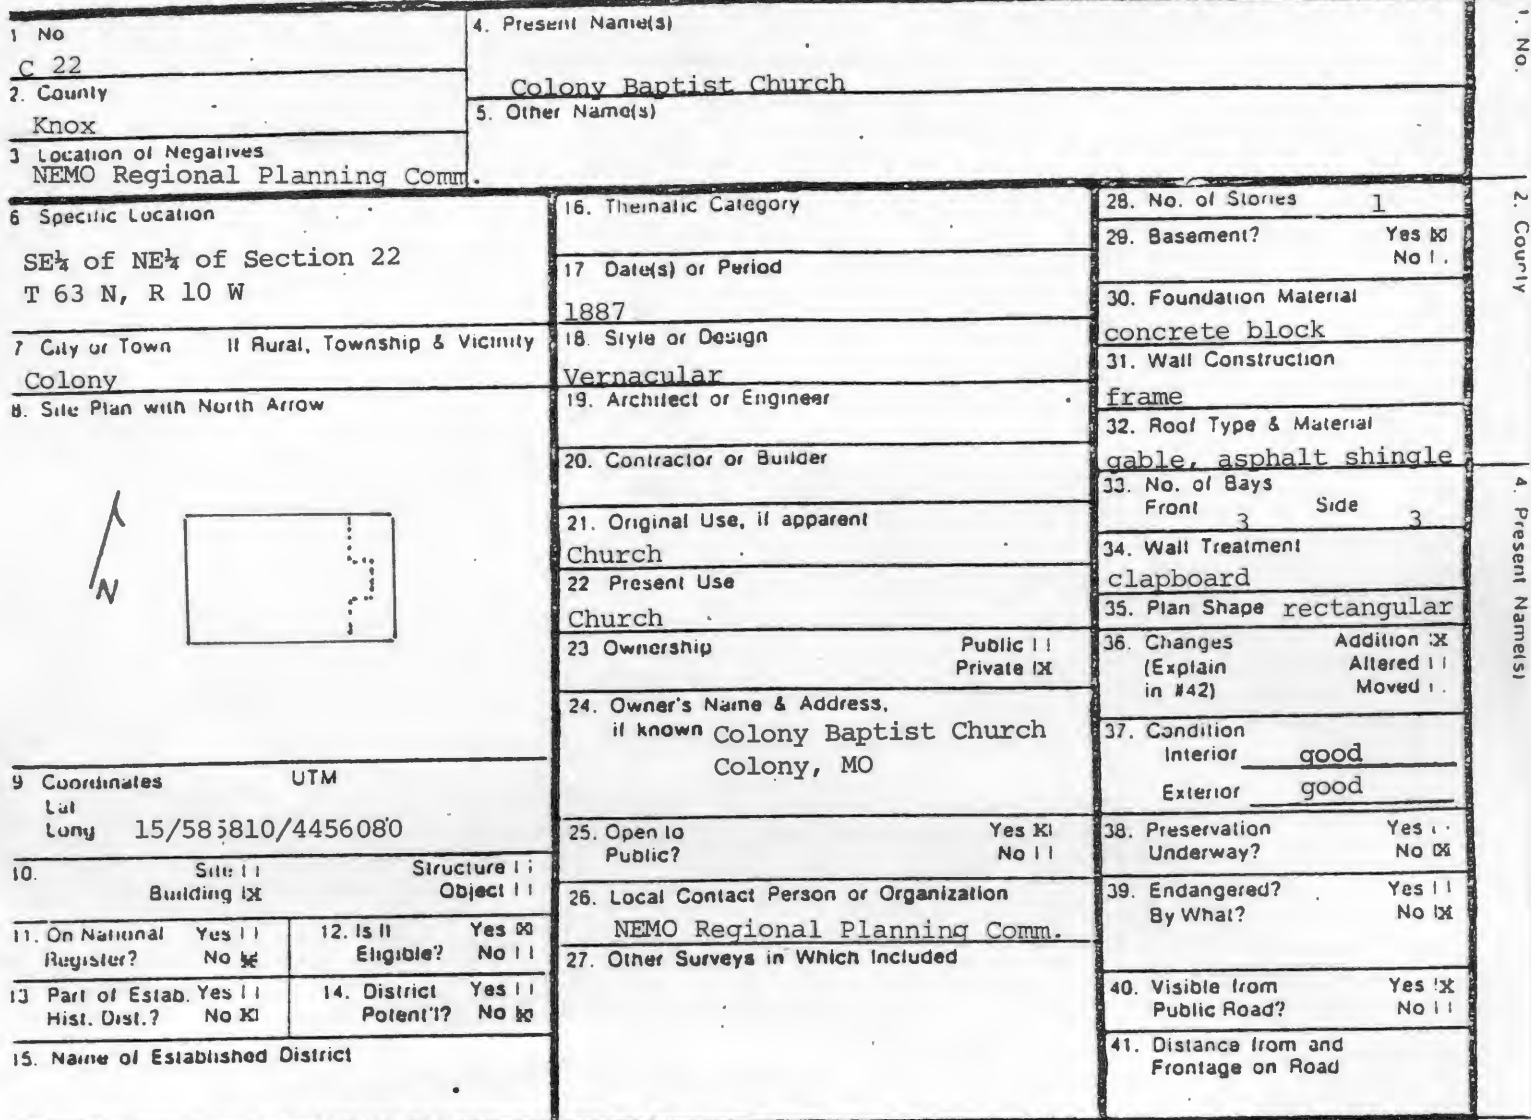 1 No
C 22
2. County
Knox
3 Location of Negatives
NEMO Regional Planning Comm.
4. Present Name(s)
Colony Baptist Church
5. Other Name(s)
6 Specific Location
SE¼ of NE¼ of Section 22
T 63 N, R 10 W
7 City or Town If Rural, Township & Vicinity
Colony
8. Site Plan with North Arrow
N
9 Coordinates UTM
Lat
Long 15/585810/4456080
10. Site | | Structure | |
Building |X Object | |
11. On National Yes | |
Register? No X
12. Is It Yes X
Eligible? No | |
13 Part of Estab. Yes | |
Hist. Dist.? No X|
14. District Yes | |
Potent'l? No X
15. Name of Established District
16. Thematic Category
17 Date(s) or Period
1887
18. Style or Design
Vernacular
19. Architect or Engineer
20. Contractor or Builder
21. Original Use, if apparent
Church
22 Present Use
Church
23 Ownership Public | |
Private |X
24. Owner's Name & Address,
if known Colony Baptist Church
Colony, MO
25. Open to Yes X|
Public? No | |
26. Local Contact Person or Organization
NEMO Regional Planning Comm.
27. Other Surveys in Which Included
28. No. of Stories 1
29. Basement? Yes X
No | .
30. Foundation Material
concrete block
31. Wall Construction
frame
32. Roof Type & Material
gable, asphalt shingle
33. No. of Bays
Front 3 Side 3
34. Wall Treatment
clapboard
35. Plan Shape rectangular
36. Changes Addition X
(Explain Altered | |
in #42) Moved | .
37. Condition
Interior good
Exterior good
38. Preservation Yes | .
Underway? No X
39. Endangered? Yes | |
By What? No |X
40. Visible from Yes |X
Public Road? No | |
41. Distance from and
Frontage on Road
1. No.
2. County
4. Present Name(s)